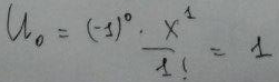 U₀ = (-1)⁰ · x¹/1! = 1